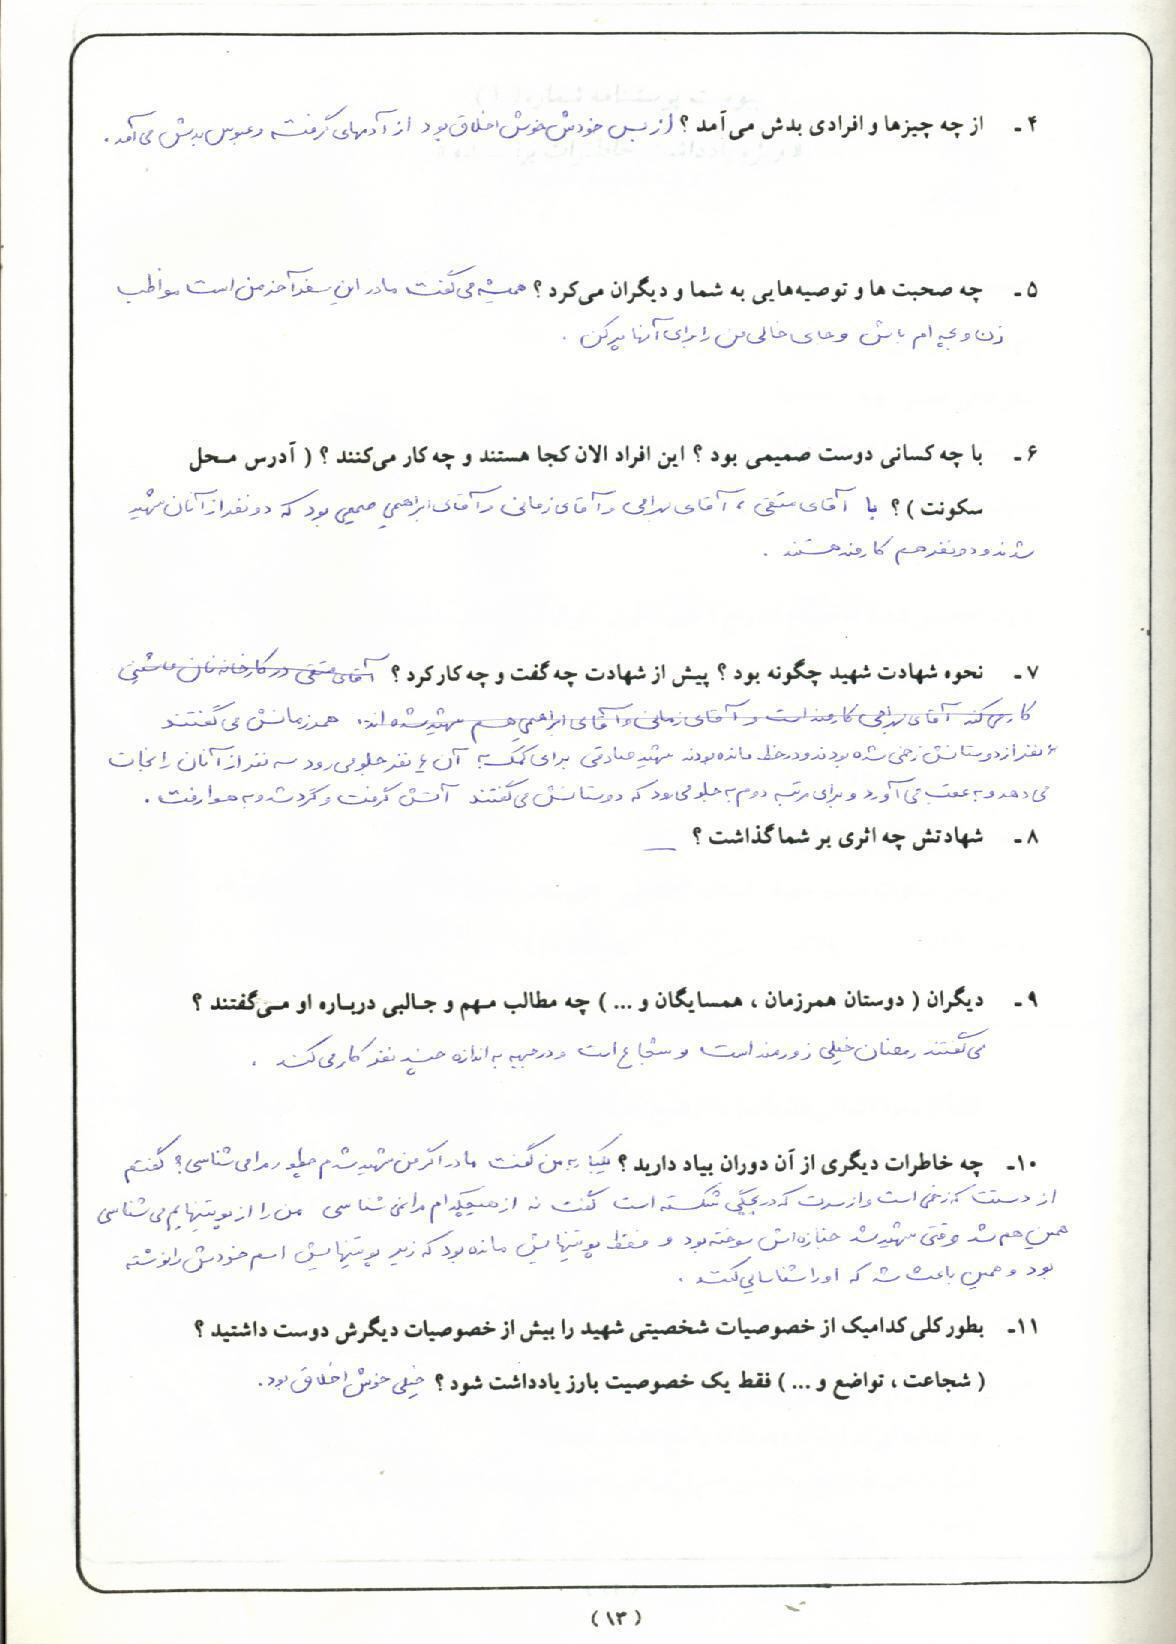 ۴ - از چه چیزها و افرادی بدش می‌آمد ؟ از بس خودش خوش اخلاق بود از آدمهای گرفته و عبوس بدش می‌آمد .
۵ - چه صحبت ها و توصیه‌هایی به شما و دیگران می‌کرد ؟ همیشه می‌گفت مادر این سفر آخر من است مواظب
زن و بچه ام باش و جای خالی من را برای آنها پر کن .
۶ - با چه کسانی دوست صمیمی بود ؟ این افراد الان کجا هستند و چه کار می‌کنند ؟ ( آدرس محل
سکونت ) ؟ با آقای متقی ، آقای بهرامی و آقای زمانی و آقای ابراهیمی صمیمی بود که دو نفر از آنان شهید
شدند و دو نفر هم کارمند هستند .
۷ - نحوه شهادت شهید چگونه بود ؟ پیش از شهادت چه گفت و چه کار کرد ؟ آقای متقی در کارخانه نان ماشینی
کار می کند آقای بهرامی کارمند است و آقای زمانی و آقای ابراهیمی هم شهید شده اند. همرزمانش می گفتند
۴ نفر از دوستانش زخمی شده بودند و در خط مانده بودند شهید صادقی برای کمک به آن ۴ نفر جلو می رود سه نفر از آنان را نجات
می دهد و به عقب می آورد و برای مرتبه دوم به جلو می رود که دوستانش می گفتند آتش گرفت و گرد شد و به هوا رفت .
۸ - شهادتش چه اثری بر شما گذاشت ؟ —
۹ - دیگران ( دوستان همرزمان ، همسایگان و ... ) چه مطالب مهم و جالبی درباره او می‌گفتند ؟
می گفتند رمضان خیلی زورمند است و شجاع است و در جبهه به اندازه چند نفر کار می کند .
۱۰- چه خاطرات دیگری از آن دوران بیاد دارید ؟ یکبار به من گفت مادر اگر من شهید شدم چطور مرا می شناسی؟ گفتم
از دستت که زخمی است و از سرت که در بچگی شکسته است گفت نه از هیچکدام مرا نمی شناسی من را از پوتینهایم می شناسی
همین هم شد وقتی شهید شد جنازه اش سوخته بود و فقط پوتینهایش مانده بود که زیر پوتینهایش اسم خودش را نوشته
بود و همین باعث شد که او را شناسایی کنند .
۱۱- بطور کلی کدامیک از خصوصیات شخصیتی شهید را بیش از خصوصیات دیگرش دوست داشتید ؟
( شجاعت ، تواضع و ... ) فقط یک خصوصیت بارز یادداشت شود ؟ خیلی خوش اخلاق بود.
( ۱۳ )